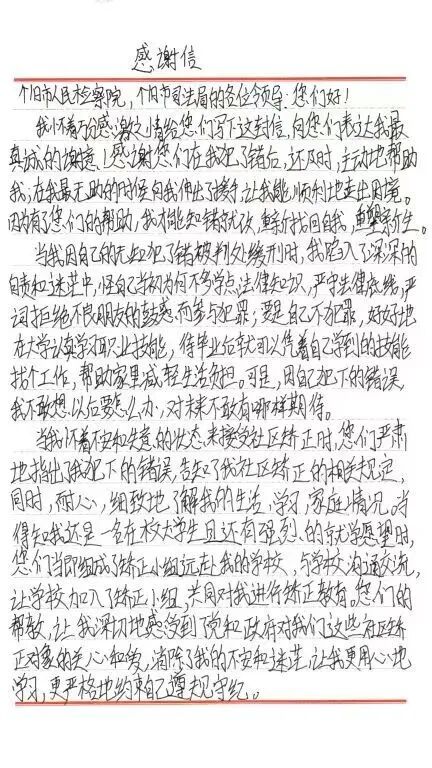 感谢信
个旧市人民检察院,个旧市司法局的各位领导:您们好!
我怀着万分感激之情给您们写下这封信,向您们表达我最
真诚的谢意!感谢您们在我犯了错后,还及时,主动地帮助
我,在我最无助的时候向我伸出了援手,让我能顺利地走出困境。
因为有了您们的帮助,我才能知错就改,重新找回自我,重塑新生。
当我因自己的无知犯了错被判处缓刑时,我陷入了深深的
自责和迷茫中,怪自己当初为何不多学点法律知识,严守法律底线,严
词拒绝不良朋友的鼓惑而参与犯罪;要是自己不犯罪,好好地
在大学认真学习职业技能,待毕业后就可以凭着自己学到的技能
找个工作,帮助家里减轻生活负担。可是,因自己犯下的错误,
我不敢想以后要怎么办,对未来不敢有哪样期待。
当我怀着不安和失意的状态,来接受社区矫正时,您们严肃
地指出了我犯下的错误,告知了我社区矫正的相关规定,
同时,耐心,细致地了解我的生活,学习,家庭情况。当
得知我还是一名在校大学生且还有强烈的就学愿望时,
您们当即组成了矫正小组远赴我的学校,与学校沟通交流,
让学校加入了矫正小组,共同对我进行矫正教育。您们的
帮教,让我深切地感受到了党和政府对我们这些社区矫
正对象的关心和爱,消除了我的不安和迷茫,让我更用心地
学习,更严格地约束自己遵规守纪。